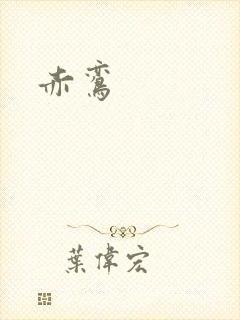 赤鸞
葉偉宏